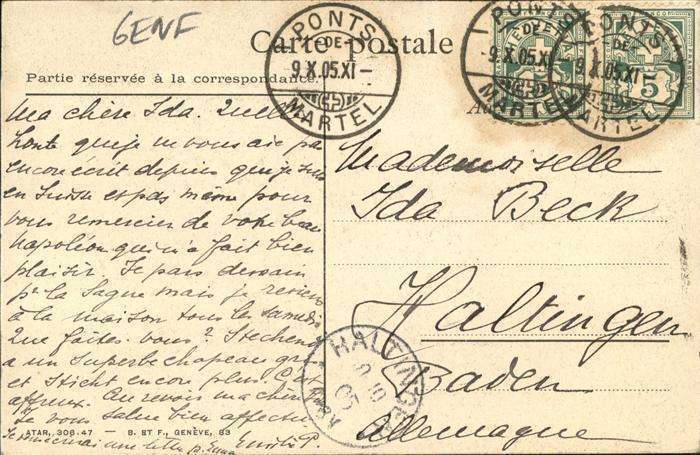 GENF
Carte postale
Partie réservée à la correspondance.
PONTS
DE
9.X.05.XI-
MARTEL
PONTS
DE
-9.X.05.XI
MARTEL
PONTS
DE
9.X.05.XI
MARTEL
5
Ma chère Ida. Quelle
honte que je ne vous aie pas
encore écrit depuis que je suis
en Suisse et pas même pour
vous remercier de votre beau
Napoléon qui m'a fait bien
plaisir. Je pars demain
pr la Sagne mais je reviens
à la maison tous les samedis
Que faites-vous? Stechens
a un superbe chapeau gris
et Sticht encore plus. C'est
affreux. Au revoir ma chère
Je vous salue bien affectue
Emilie P.
Mademoiselle
Ida Beck
Haltingen
Baden
Allemagne
HALTINGEN
10
05
ATAR, 306.47 — B. ET F., GENÈVE, 83